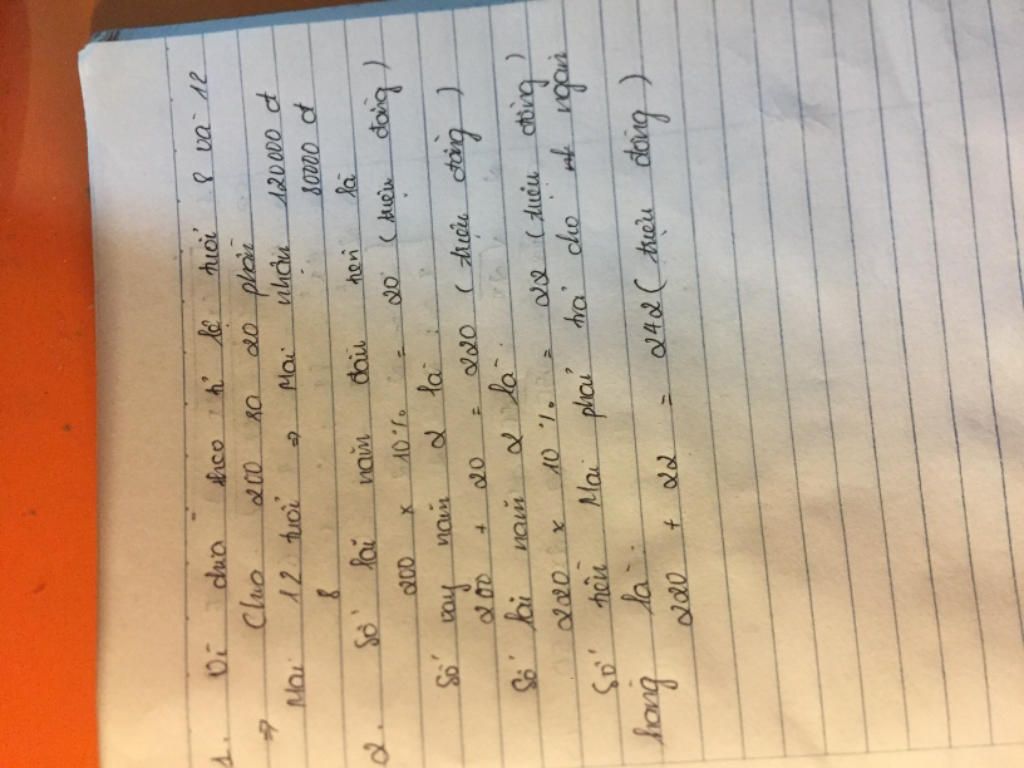 1. Vì chia theo tỉ lệ tuổi 8 và 12
⇒ Chia 200 ra 20 phần
Mai 12 tuổi ⇒ Mai nhận 120000 đ
8 80000 đ
2. Số lãi năm đầu tiên là
200 x 10% = 20 (triệu đồng)
Số vay năm 2 là:
200 + 20 = 220 (triệu đồng)
Số lãi năm 2 là:
220 x 10% = 22 (triệu đồng)
Số tiền Mai phải trả cho ngân
hàng là:
220 + 22 = 242 (triệu đồng)